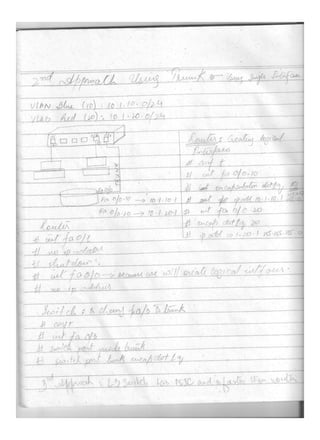 2nd Approach Using Trunk Using Single Interface
VLAN Blue (10): 10.1.10.0/24
VLAN Red (20): 10.1.20.0/24
Router: Creating logical
Interfaces
# conf t
# int fa0/0.10
# encapsulation dot1q
# ip add 10.1.10.1
# int fa0/0.20
# encap dot1q 20
# ip add 10.1.20.1 255.255.255.0
TRUNK
fa 0/0
fa 0/0.10 → 10.1.10.1
fa 0/0.20 → 10.1.20.1
Router
# int fa0/1
# no ip address
# shutdown
# int fa0/0 → because we will create logical interfaces.
# no ip address
Switch: change fa0/0 to trunk
# conf t
# int fa 0/
# switch port mode trunk
# switch port trunk encap dot1q
3rd Approach: L3 Switch has and faster then router